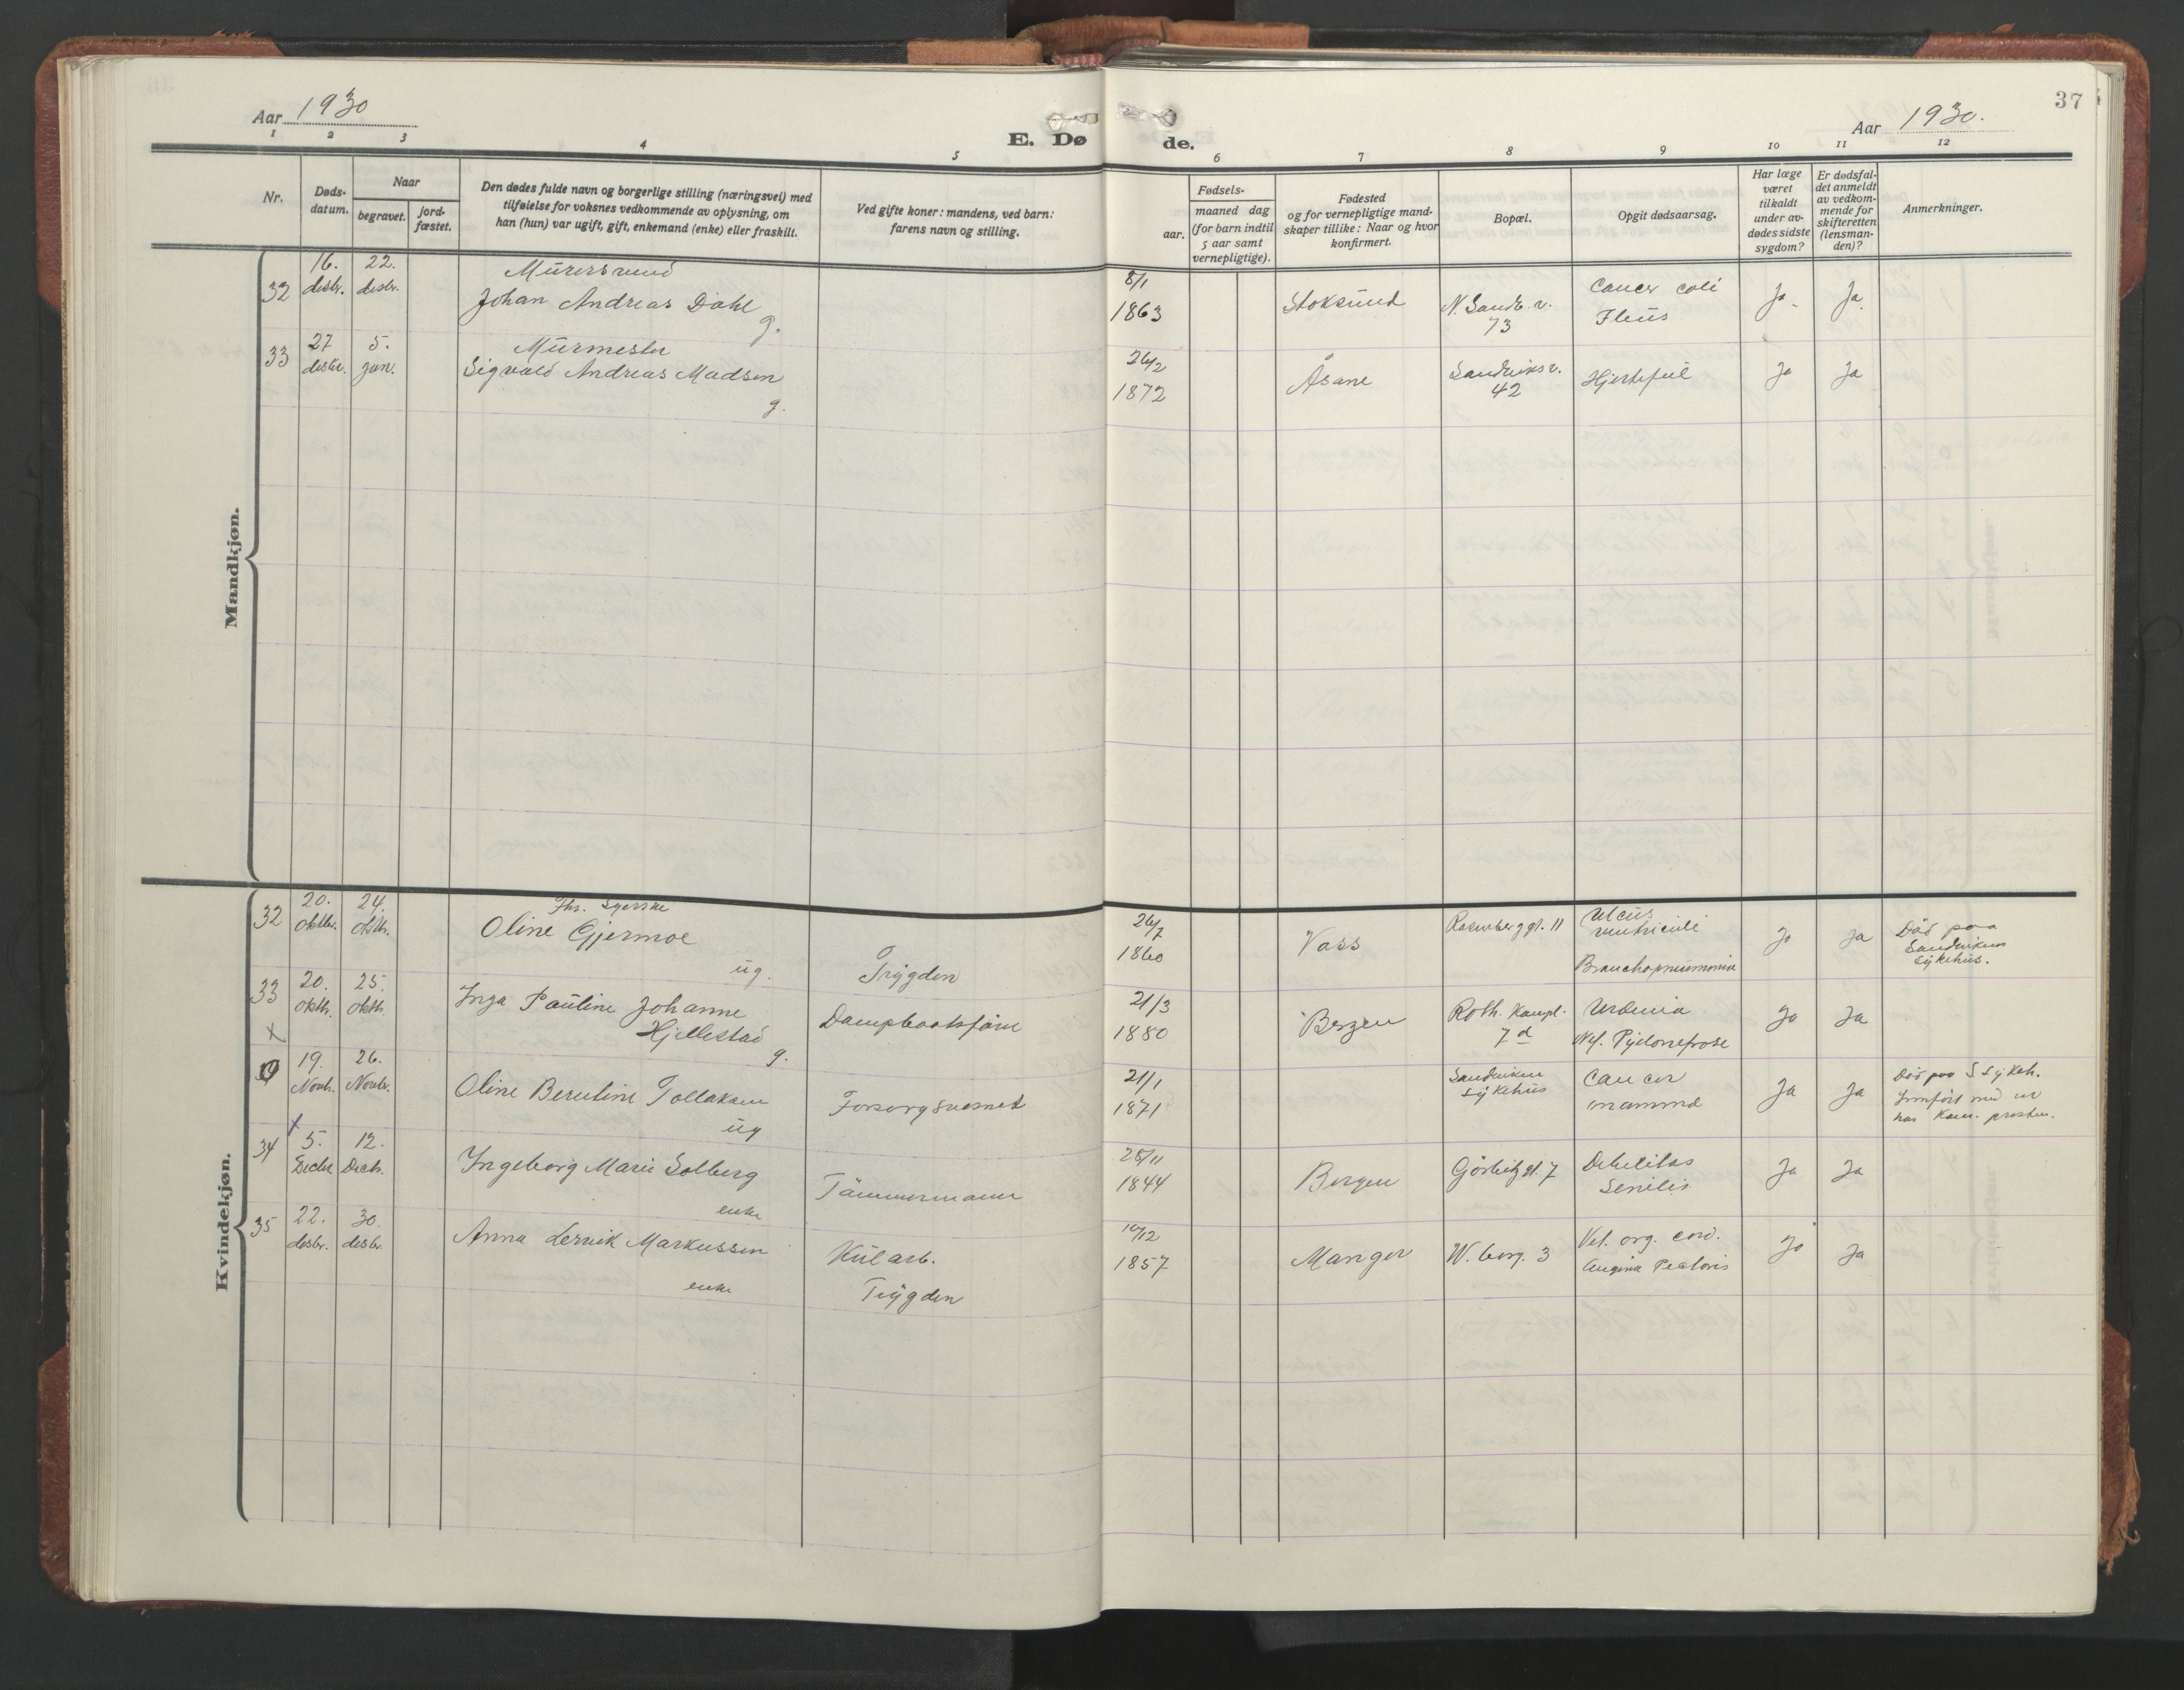 Aar 1930
E. Dø de.
Aar 1930.
37
1 2 3 4 5 6 7 8 9 10 11 12
Nr.
Døds-
datum.
Naar
begravet.
jord-
fæstet.
Den dødes fulde navn og borgerlige stilling (næringsvei) med
tilføielse for voksnes vedkommende av oplysning, om
han (hun) var ugift, gift, enkemand (enke) eller fraskilt.
Ved gifte koner: mandens, ved barn:
farens navn og stilling.
Fødsels-
aar.
maaned dag
(for barn indtil
5 aar samt
vernepligtige).
Fødested
og for vernepligtige mand-
skaper tillike: Naar og hvor
konfirmert.
Bopæl.
Opgit dødsaarsag.
Har læge
været
tilkaldt
under av-
dødes sidste
sygdom?
Er dødsfal-
det anmeldt
av vedkom-
mende for
skifteretten
(lensman-
den)?
Anmerkninger.
Mandkjøn.
32
16.
desbr.
22.
desbr.
Murersvend
Johan Andreas Dahl
g.
8/1
1863
Stoksund
N. Sandv. v.
73
Cancer coli
Ileus
Ja
Ja.
33
27
desbr.
5.
jan.
Murmester
Sigvald Andreas Madsen
g.
26/2
1872
Åsane
Sandviksv.
42
Hjertefeil
Ja
Ja
Kvindekjøn.
32
20.
oktbr.
24.
oktb.
Fhv. Syerske
Oline Gjermoe
ug.
Trygden
26/7
1860
Voss
Rosenberggt. 11
Ulcus
ventriculi
Bronchopneumonia
Ja
Ja
Død paa
Sandvikens
sykehus.
33
20.
oktb.
25.
oktb.
Inga Pauline Johanne
Hjellestad
g.
Dampbaatsfører
21/3
1880
Bergen
Roth. Kampl.
7 d
Uremia
Nef. Pyelonefrose
Ja
Ja
0
19.
Novb.
26.
Novbr.
Oline Berntine Tollaksen
ug
Forsorgsvesenet
21/1
1871
Sandviken
sykehus
Cancer
mamma
Ja
Ja
Død paa S Sykeh.
hos Kom. presten.
34
5.
Decbr
12.
Decb.
Ingeborg Marie Solberg
enke
Tømmermann
28/11
1844
Bergen
Gørbitzgt. 7
Debilitas
Senilis
Ja
Ja
35
22.
desbr.
30.
desbr.
Anna Lervik Markussen
enke
Kularb.
Trygden
10/12
1857
Manger
W. borg. 3
Vit. org. cord.
Angina Pectoris
Ja
Ja